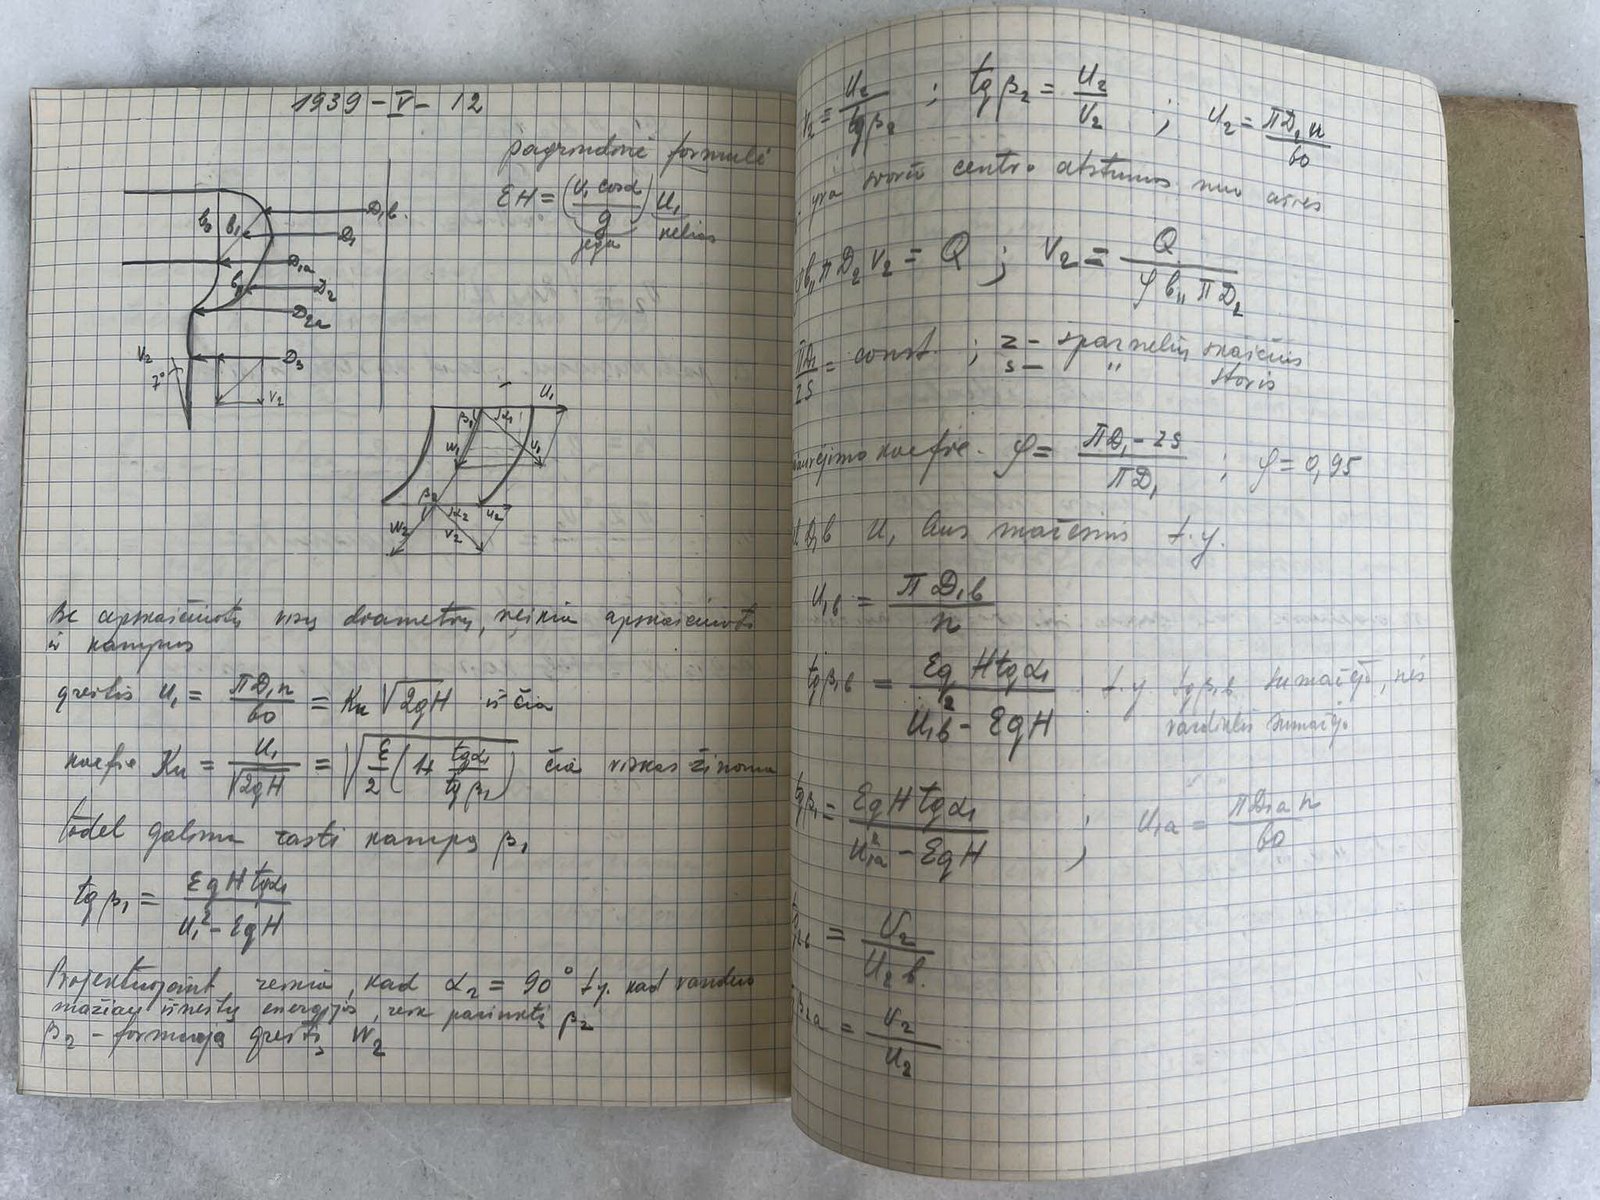 1939 – V – 12
pagrindinė formulė
εH = (u₁ cosα / g) u₁
jėga kelias
b₀ b₁ D₁b.
D₁
D₁a
b₁₁ D₂
D₂a
D₃
V₂
7°
V₂
U₁
β₁ α₁
W₁ V₁
β₂ α₂ u₂
W₂ V₂
Be apskaičiuotų visų diametrų, reikia apskaičiuoti
ir kampus
greitis u₁ = πD₁n / 60 = Kᵤ √2gH iš čia
koefic Kᵤ = u₁ / √2gH = √(ε/2 (1+ tgα₁ / tgβ₁)) čia viskas žinoma
todėl galima rasti kampą β₁
tgβ₁ = εgH tgα₁ / u₁² – εgH
Projektuojant reikia, kad α₂ = 90° t.y. kad vanduo
mažiau išneštų energijos, reik parinkti β₂
β₂ – formuoja greitį W₂
V₂ = u₂ / tgβ₂ ; tgβ₂ = u₂ / V₂ ; u₂ = πD₂n / 60
yra svorio centro atstumas nuo ašies
b₁₁ π D₂ V₂ = Q ; V₂ = Q / φ b₁₁ π D₂
πD₁ / zs = const. ; z – sparnelių skaičius
s – " storis
koefic. φ = πD₁ – zs / πD₁ ; φ = 0,95
D₁b u₁ bus mažesnis t.y.
u₁b = π D₁b / n
tgβ₁b = εg H tgα₁ / u₁b² – εgH t.y. tgβ₁b sumažėjo, nes
vardiklis sumažėjo
tgβ₁ = εgH tgα₁ / u₁a² – εgH ; u₁a = πD₁a n / 60
= V₂ / u₂b.
β₂a = V₂ / u₂